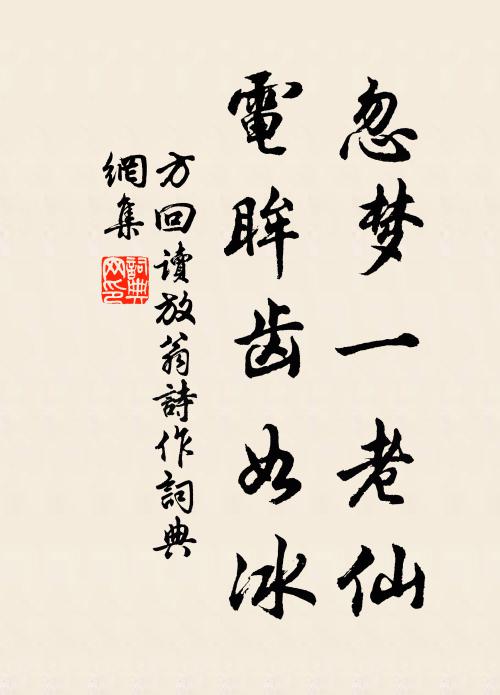 忽梦一老仙
電眸齿如冰
方回讀放翁詩作詞典
網集
詞典
网印